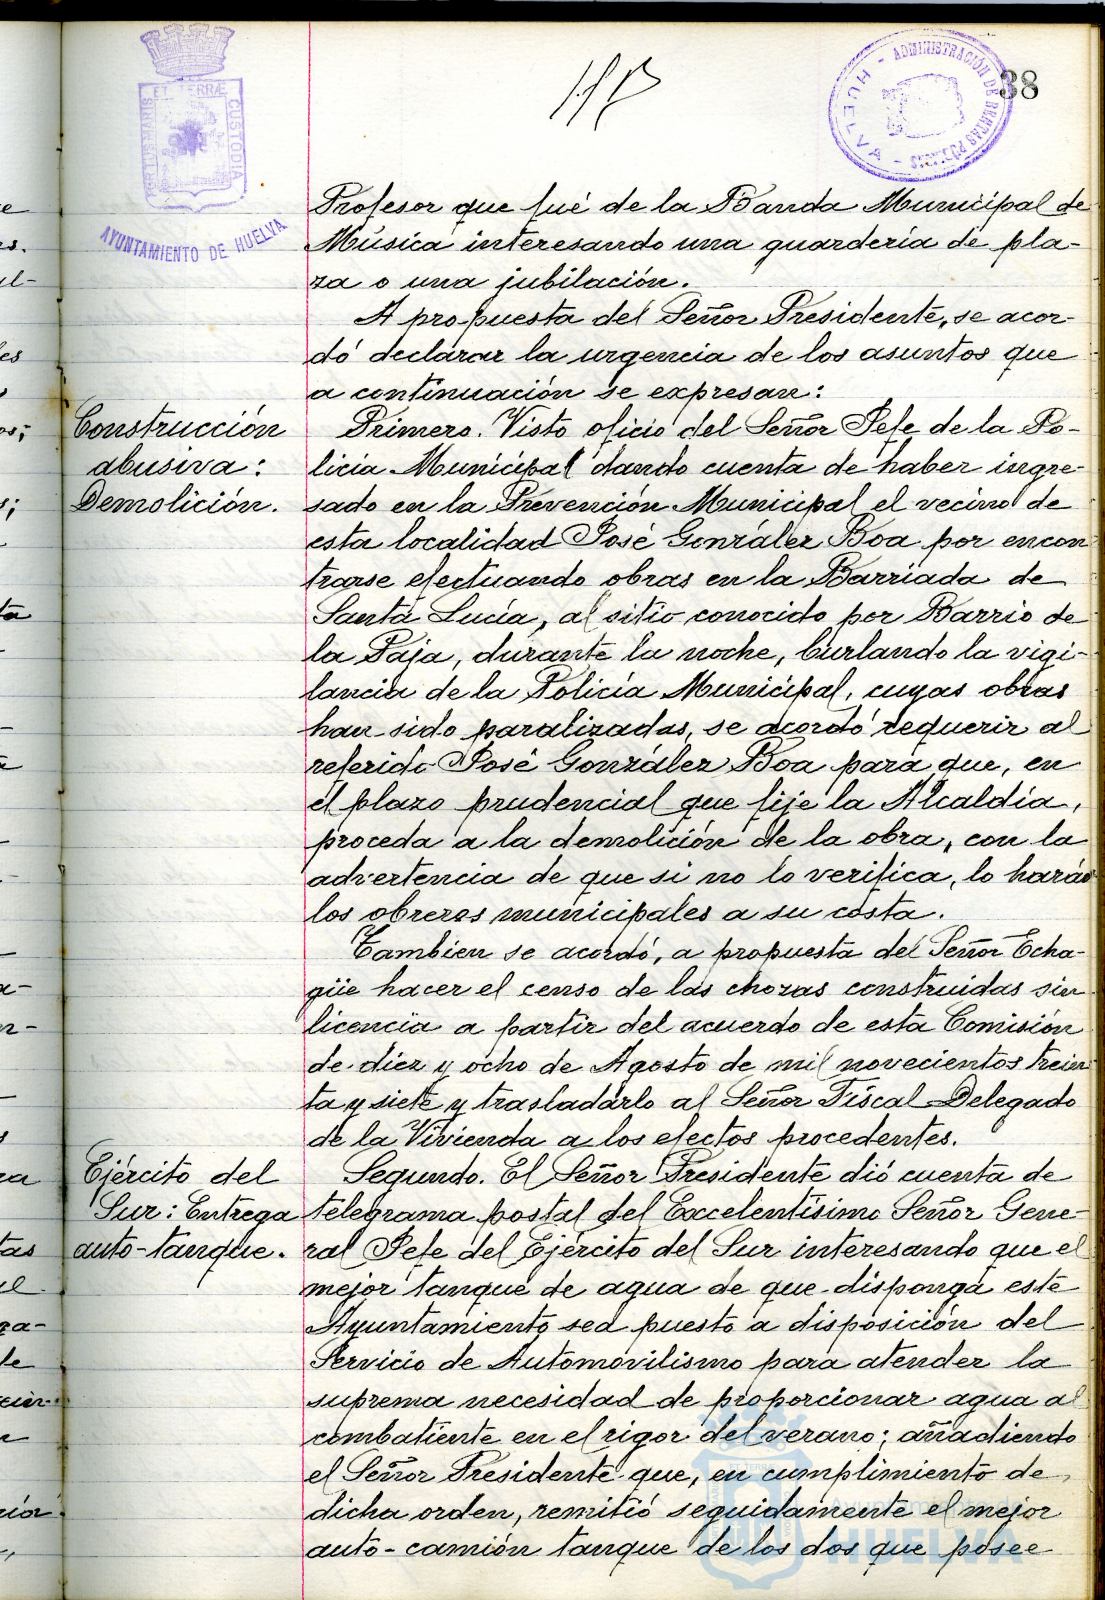 38
PORTUS MARIS ET TERRÆ CUSTODIA
AYUNTAMIENTO DE HUELVA
ADMINISTRACIÓN DE RENTAS PÚBLICAS - HUELVA -
Profesor que fué de la Banda Municipal de
Música interesando una guardería de pla-
za o una jubilación.
A propuesta del Señor Presidente, se acor-
dó declarar la urgencia de los asuntos que
a continuación se expresan:
Construcción
abusiva:
Demolición.
Primero. Visto oficio del Señor Jefe de la Po-
licía Municipal dando cuenta de haber ingre-
sado en la Prevención Municipal el vecino de
esta localidad José González Boa por encon
trarse efectuando obras en la Barriada de
Santa Lucía, al sitio conocido por Barrio de
la Paja, durante la noche, burlando la vigi-
lancia de la Policía Municipal, cuyas obras
han sido paralizadas, se acordó requerir al
referido José González Boa para que, en
el plazo prudencial que fije la Alcaldía,
proceda a la demolición de la obra, con la
advertencia de que si no lo verifica, lo harán
los obreros municipales a su costa.
Tambien se acordó, a propuesta del Señor Echa-
güe hacer el censo de las chozas construidas sin
licencia a partir del acuerdo de esta Comisión
de diez y ocho de Agosto de mil novecientos trein
ta y siete y trasladarlo al Señor Fiscal Delegado
de la Vivienda a los efectos procedentes.
Ejército del
Sur: Entrega
auto-tanque.
Segundo. El Señor Presidente dió cuenta de
telegrama postal del Excelentísimo Señor Gene-
ral Jefe del Ejército del Sur interesando que el
mejor tanque de agua de que disponga este
Ayuntamiento sea puesto a disposición del
Servicio de Automovilismo para atender la
suprema necesidad de proporcionar agua al
combatiente en el rigor del verano; añadiendo
el Señor Presidente que, en cumplimiento de
dicha orden, remitió seguidamente el mejor
auto-camión tanque de los dos que posee
Ayuntamiento de
HUELVA